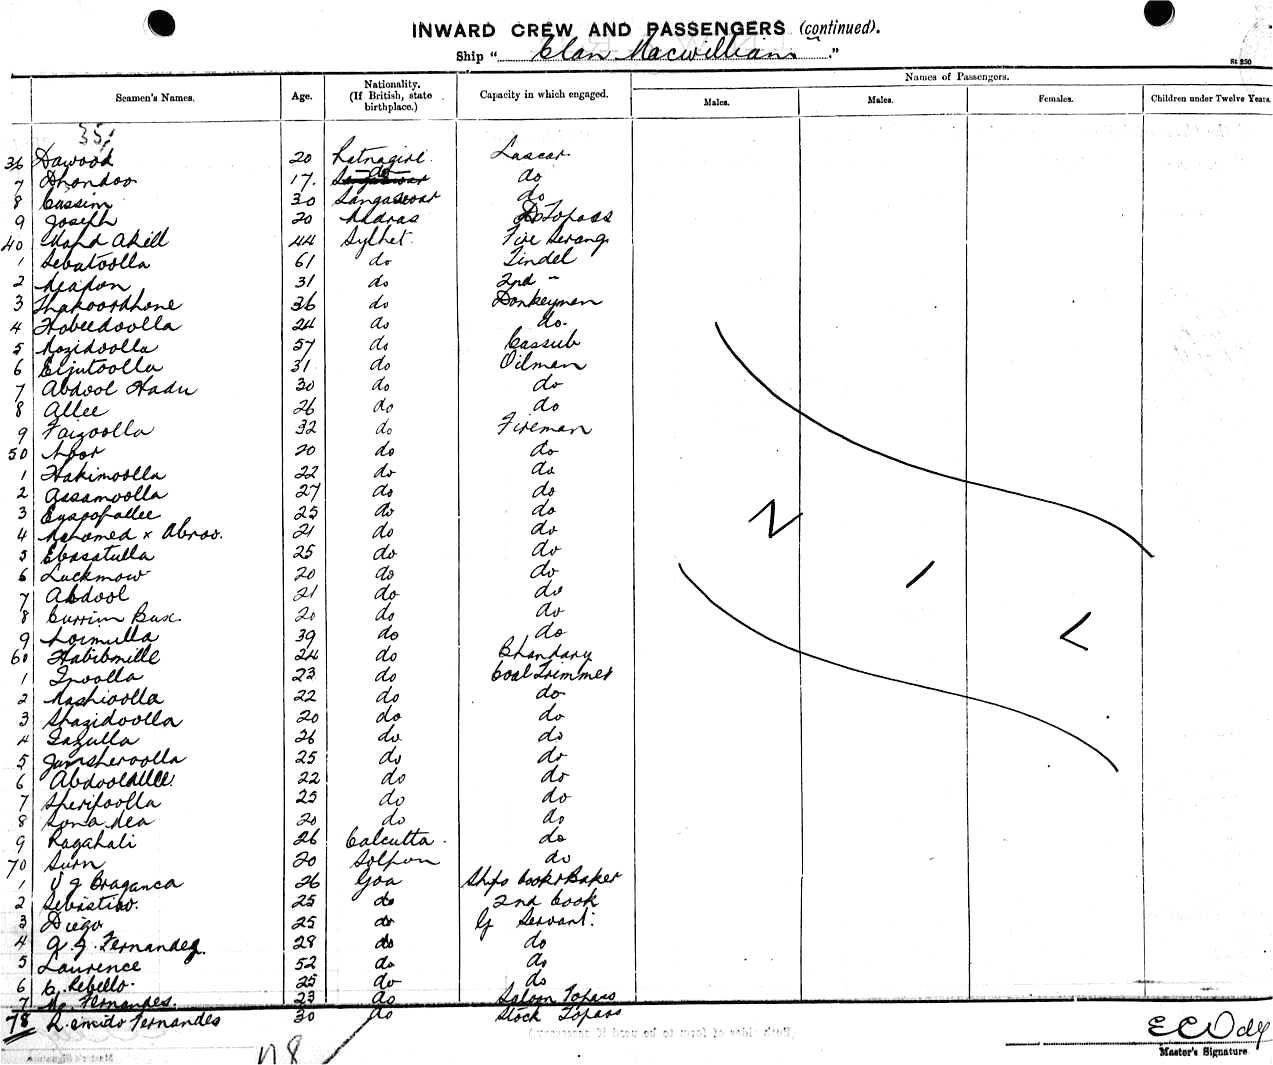 INWARD CREW AND PASSENGERS (continued).
Ship " Clan Macwilliam "
St 250
Seamen's Names. Age. Nationality. (If British, state birthplace.) Capacity in which engaged. Names of Passengers.
Males. Males. Females. Children under Twelve Years.
35
36 Dawood 20 Ratnagiri Lascar
7 Dhondoo 17. do do
8 Cassim 30 Sangaswar do
9 Joseph 20 Madras Topass
40 Mohd Akill 44 Sylhet Fire Serang
1 Sebatoolla 61 do Tindel
2 31 do 2nd "
3 Thakoordhone 36 do Donkeyman
4 Hobeedoolla 24 do do.
5 Mozidoolla 57 do Cassub
6 Eljutoolla 31 do Oilman
7 Abdool Hadu 30 do do
8 Allee 26 do do
9 Faizoolla 32 do Fireman
50 20 do do
1 Hakimoolla 22 do do
2 Assamoolla 27 do do
3 25 do do
4 Mahomed x Abroo. 21 do do
5 Ebasatulla 25 do do
6 Luckmow 20 do do
7 Abdool 21 do do
8 Currim Bux. 20 do do
9 39 do do
60 Habibmille 24 do Bhandary
1 23 do Coal Trimmer
2 22 do do
3 Shazidoolla 20 do do
4 26 do do
5 Jumsheroolla 25 do do
6 Abdoolallee 22 do do
7 Sherifoolla 25 do do
8 Sona Mea 20 do do
9 Ragahali 26 Calcutta do
70 20 do
1 V J Braganca 26 Goa Ships Cook & Baker
2 25 do 2nd Cook
3 Diego 25 do G Servant.
4 Fernandez 28 do do
5 Laurence 52 do do
6 C. Rebello. 25 do do
7 Fernandes. 23 do Saloon Topass
78 Fernandes 30 do Stock Topass
78
Master's Signature